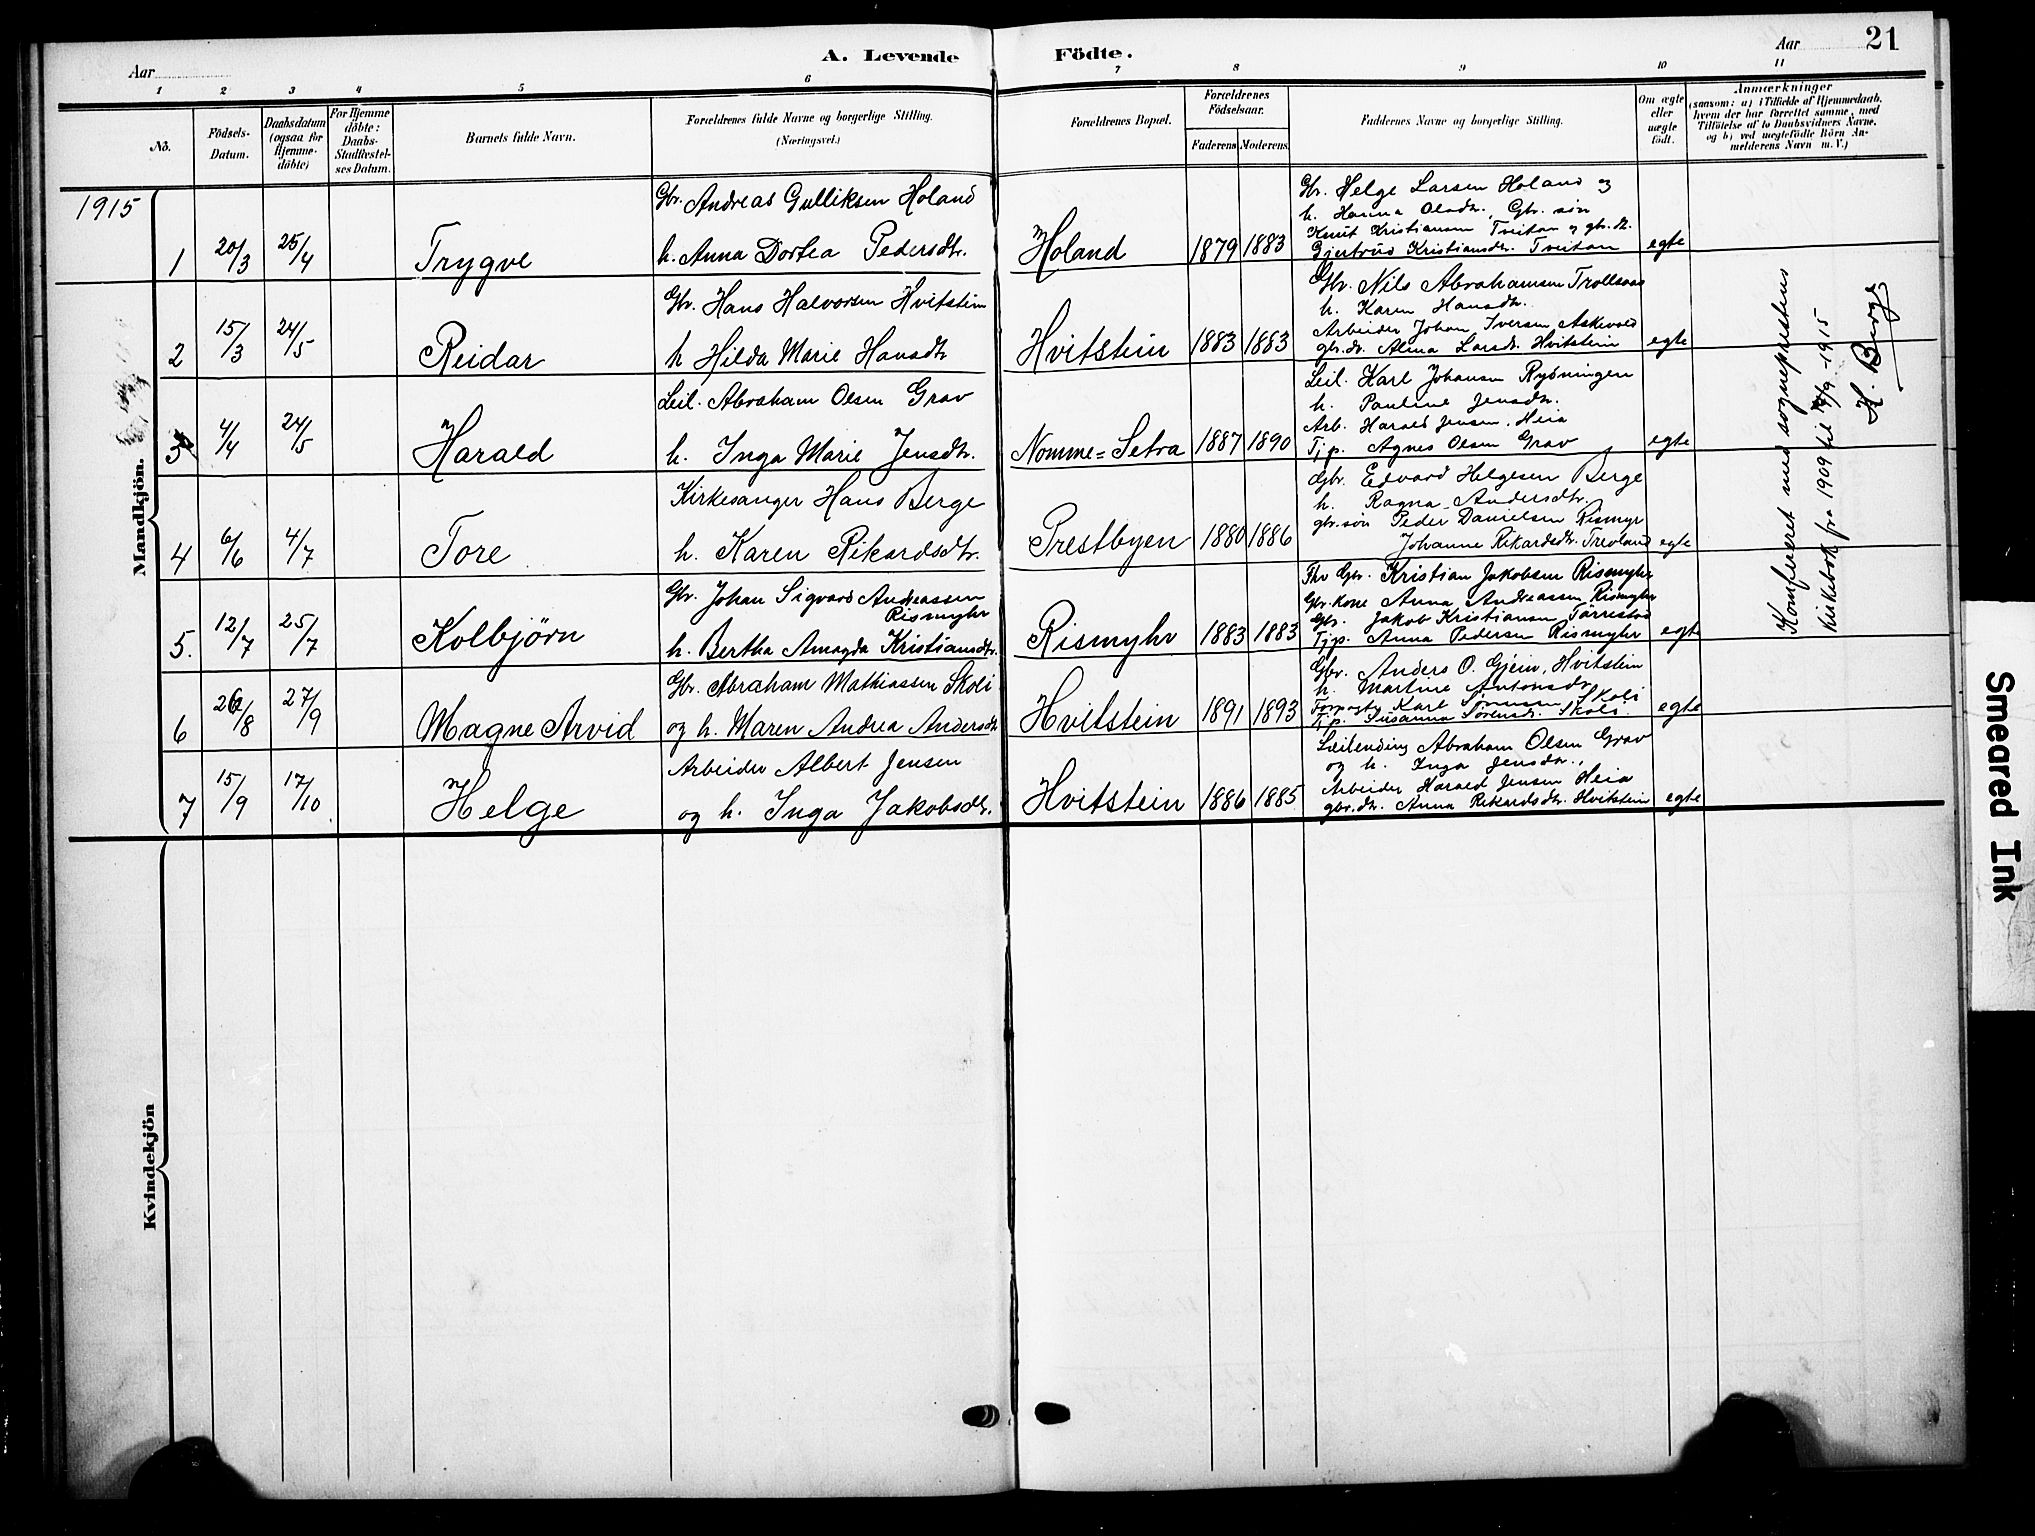 A. Levende Födte.
21
Aar
Aar
1 2 3 4 5 6 7 8 9 10 11
No.
Födsels-Datum.
Daabsdatum (ogsaa for Hjemme-döbte)
For Hjemme döbte: Daabs-Stadfæstel-ses Datum.
Barnets fulde Navn.
Forældrenes fulde Navne og borgerlige Stilling.
(Næringsvei.)
Forældrenes Bopæl.
Forældrenes Födselsaar.
Faderens Moderens
Faddernes Navne og borgerlige Stilling.
Om ægte eller uægte født.
Anmærkninger
(saasom: a) i Tilfælde af Hjemmedaab,
hvem der har forrettet samme, med
Tilföielse af to Daabsvidners Navne,
og b) ved uægtefödte Börn An-
melderens Navn m. V.)
1915
Mandkjön.
1 20/3 25/4 Trygve
Gbr. Andreas Gulliksen Holand
h. Anna Dortea Pedersdtr.
Holand 1879 1883
Gbr. Helge Larsen Holand og
h. Hanna Olsdtr., Gbr. søn
Knut Kristiansen Tveitan og gbr. d.
Gjertrud Kristiansdtr. Tveitan
egte
2 15/3 24/5 Reidar
Gbr. Hans Halvorsen Hvitstein
h Hilda Marie Hansdtr
Hvitstein 1883 1883
Gbr. Nils Abrahamsen Trollsaas
h. Karen Hansdtr.
Arbeider Johan Iversen Askevold
gbr. dr. Alma Larsdr. Hvitstein
egte
3 4/4 24/5 Harald
Leil. Abraham Olsen Grav
h. Inga Marie Jensdtr.
Nomme=Setra 1887 1890
Leil. Karl Johansen Rydningen
h. Pauline Jensdtr.
Arb. Harald Jensen, Heia
Tjp. Agnes Olsen Grav
egte
4 6/6 4/7 Tore
Kirkesanger Hans Berge
h. Karen Rikardsdtr.
Prestbyen 1880 1886
Gbr. Edvard Helgesen Berge
h. Ragna Andersdtr.
gbr. søn Peder Danielsen Rismyr
Johanne Rikardsdtr. Trevland
egte
5. 12/7 25/7 Kolbjörn
Gbr. Johan Sigvard Andreassen
Rismyhr
h. Bertha Amagda Kristiansdtr.
Rismyhr 1883 1883
Fhv Gbr. Kristian Jakobsen Rismyhr
Gbr. kone Anna Andreassen Rismyhr
Gbr. Jakob Kristiansen Tørrestad
Tjp. Anna Pedersen Rismyhr
egte
6 26/8 27/9 Magne Arvid
Gbr. Abraham Mathiassen Skoli
og h. Maren Andrea Andersdtr
Hvitstein 1891 1893
Gbr. Anders O. Gjein, Hvitstein
h. Martine Antonsdr
Forpagter Karl Sørensen Skoli
Tjp. Susanna Sørensdr. Skoli.
egte
7 15/9 17/10 Helge
Arbeider Albert Jensen
og h. Inga Jakobsdtr.
Hvitstein 1886 1885
Leilending Abraham Olsen Grav
og h. Inga Jensdtr.,
Arbeider Harald Jensen Heia
gbr. dr. Anna Rikardsdtr. Hvitstein
egte
Konfereret med sogneprestens
kirkebok fra 1909 til /9-1915
H. Berge
Kvindekjön
Smeared Ink